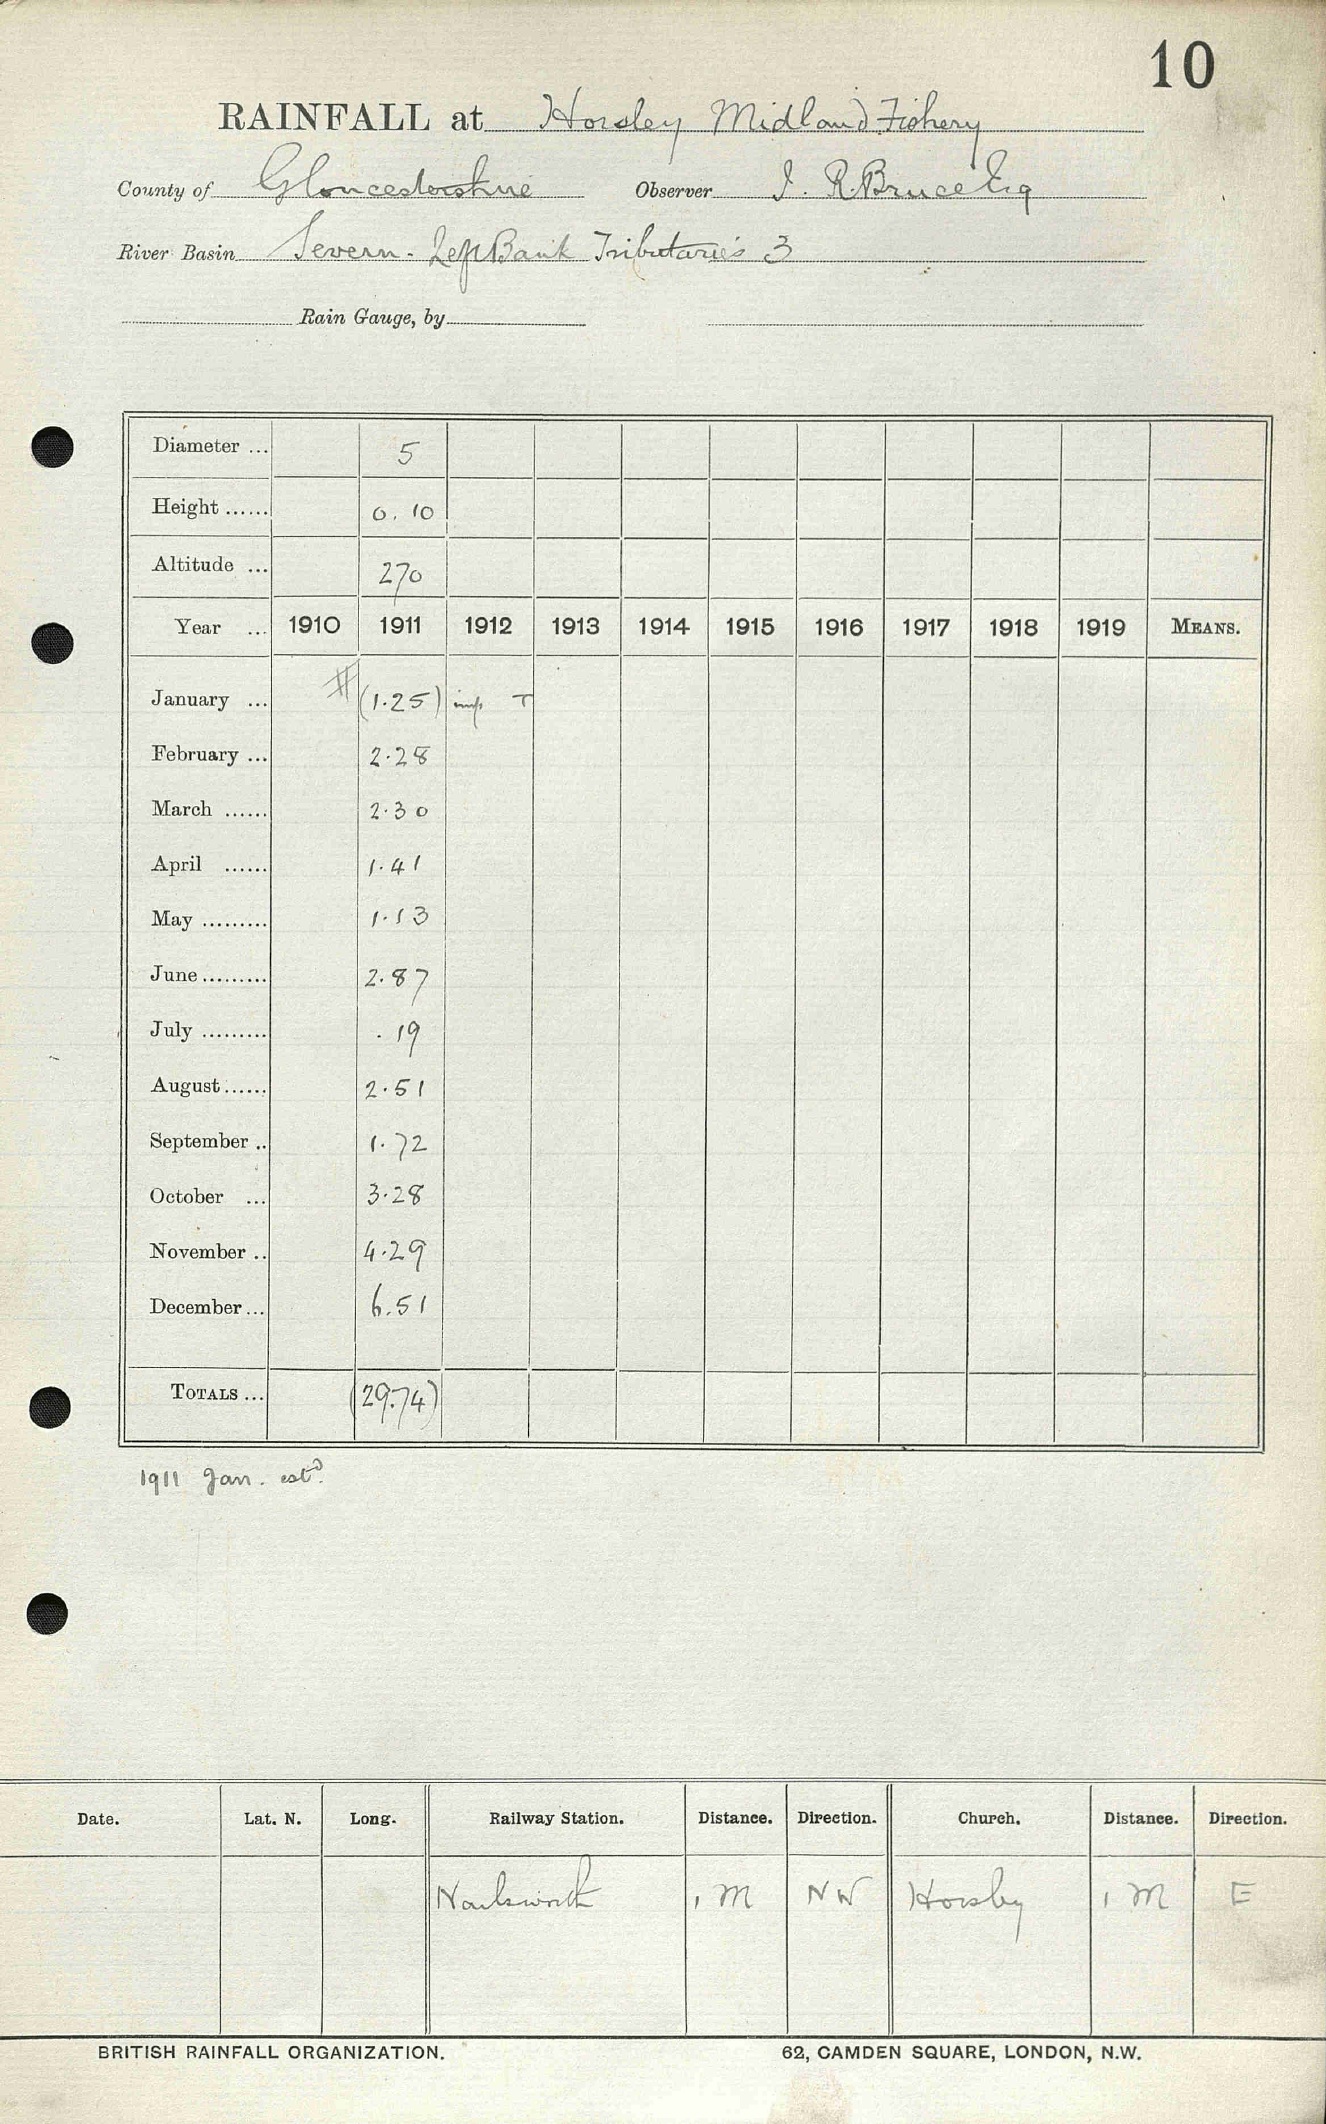 10
RAINFALL at Horsley Midland Fishery
County of Gloucestershire Observer J. R. Bruce Esq
River Basin Severn - Left Bank Tributaries 3
Rain Gauge, by
Diameter ... 5
Height ...... 0.10
Altitude ... 270
Year ... 1910 1911 1912 1913 1914 1915 1916 1917 1918 1919 MEANS.
January ... # (1.25) T
February ... 2.28
March ...... 2.30
April ...... 1.41
May ......... 1.13
June ......... 2.87
July ......... .19
August ...... 2.51
September .. 1.72
October ... 3.28
November .. 4.29
December ... 6.51
TOTALS ... (29.74)
1911 Jan. estd.
Date. Lat. N. Long. Railway Station. Distance. Direction. Church. Distance. Direction.
Nailsworth 1 M NW Horsley 1 M E
BRITISH RAINFALL ORGANIZATION. 62, CAMDEN SQUARE, LONDON, N.W.